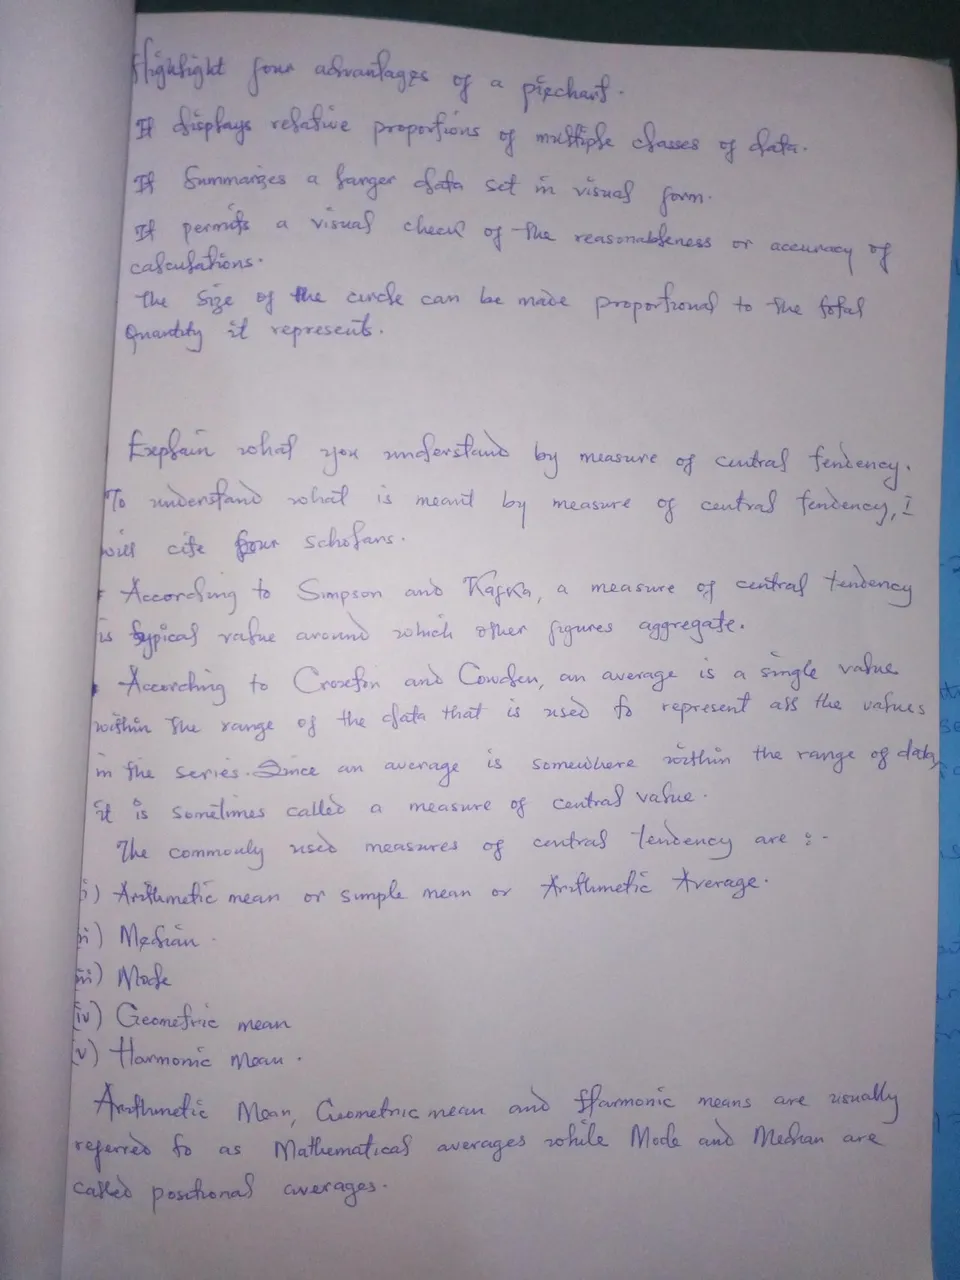 Highlight four advantages of a piechart.
It displays relative proportions of multiple classes of data.
It Summarizes a larger data set in visual form.
It permits a visual check of the reasonableness or accuracy of
calculations.
The Size of the circle can be made proportional to the total
Quantity it represents.
Explain what you understand by measure of central tendency.
To understand what is meant by measure of central tendency, I
will cite four scholars.
According to Simpson and Kafka, a measure of central tendency
is typical value around which other figures aggregate.
According to Croxton and Cowden, an average is a single value
within the range of the data that is used to represent all the values
in the series. Since an average is somewhere within the range of data,
it is sometimes called a measure of central value.
The commonly used measures of central tendency are :-
i) Arithmetic mean or simple mean or Arithmetic Average.
ii) Median.
iii) Mode
(iv) Geometric mean
(v) Harmonic Mean.
Arithmetic Mean, Geometric mean and Harmonic means are usually
referred to as Mathematical averages while Mode and Median are
called positional averages.